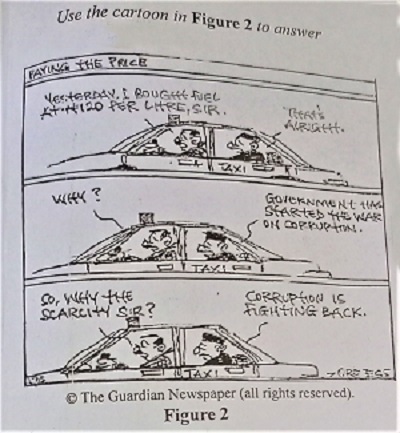 Use the cartoon in Figure 2 to answer
PAYING THE PRICE
YESTERDAY, I BOUGHT FUEL
AT ₦120 PER LITRE, SIR.
THAT'S
ALRIGHT.
TAXI
WHY?
GOVERNMENT HAS
STARTED THE WAR
ON CORRUPTION.
TAXI
SO, WHY THE
SCARCITY SIR?
CORRUPTION IS
FIGHTING BACK.
TAXI
© The Guardian Newspaper (all rights reserved).
Figure 2